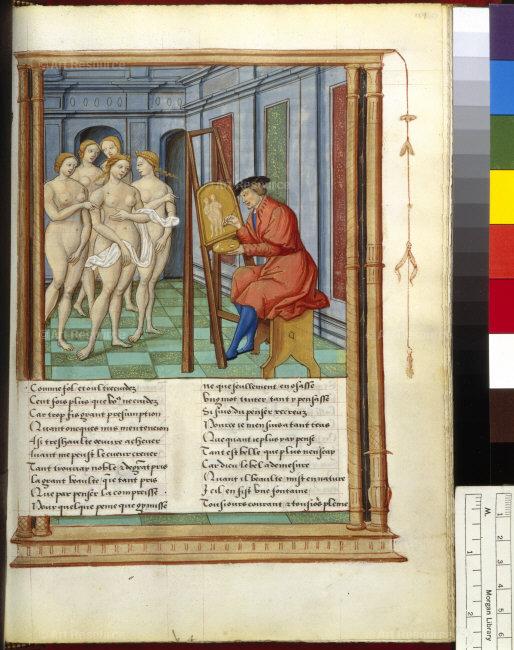 Comme fol et oultrecuidez
Cent fois plus que vo9 ne cuidez
Car trop fis grant presumption
Quant oncques mis mentencion
A si treshaulte oeuvre achever
Avant me peust le cueur crever
Tant trouvay noble & de grāt pris
La grant beaulte que tant pris
Que par penser la comprisse
Pour quelque peine que gy misse
ne que seullement en osasse
Ung mot tinter tant y pensasse
Si suis du penser recreuz
Pource ie men suis a tant teus
Que quant ie plus pense
Tant est belle que plus nen scay
Car dieu le bel a demesure
Quant il beaulte mist en nature
Il en fist une fontaine
Tousiours courant & tousiōs pleine
Art Resource
Art Resource
Art Resource
Art Resource
M.
Morgan Library
1
2
1
2
3
4
5
6